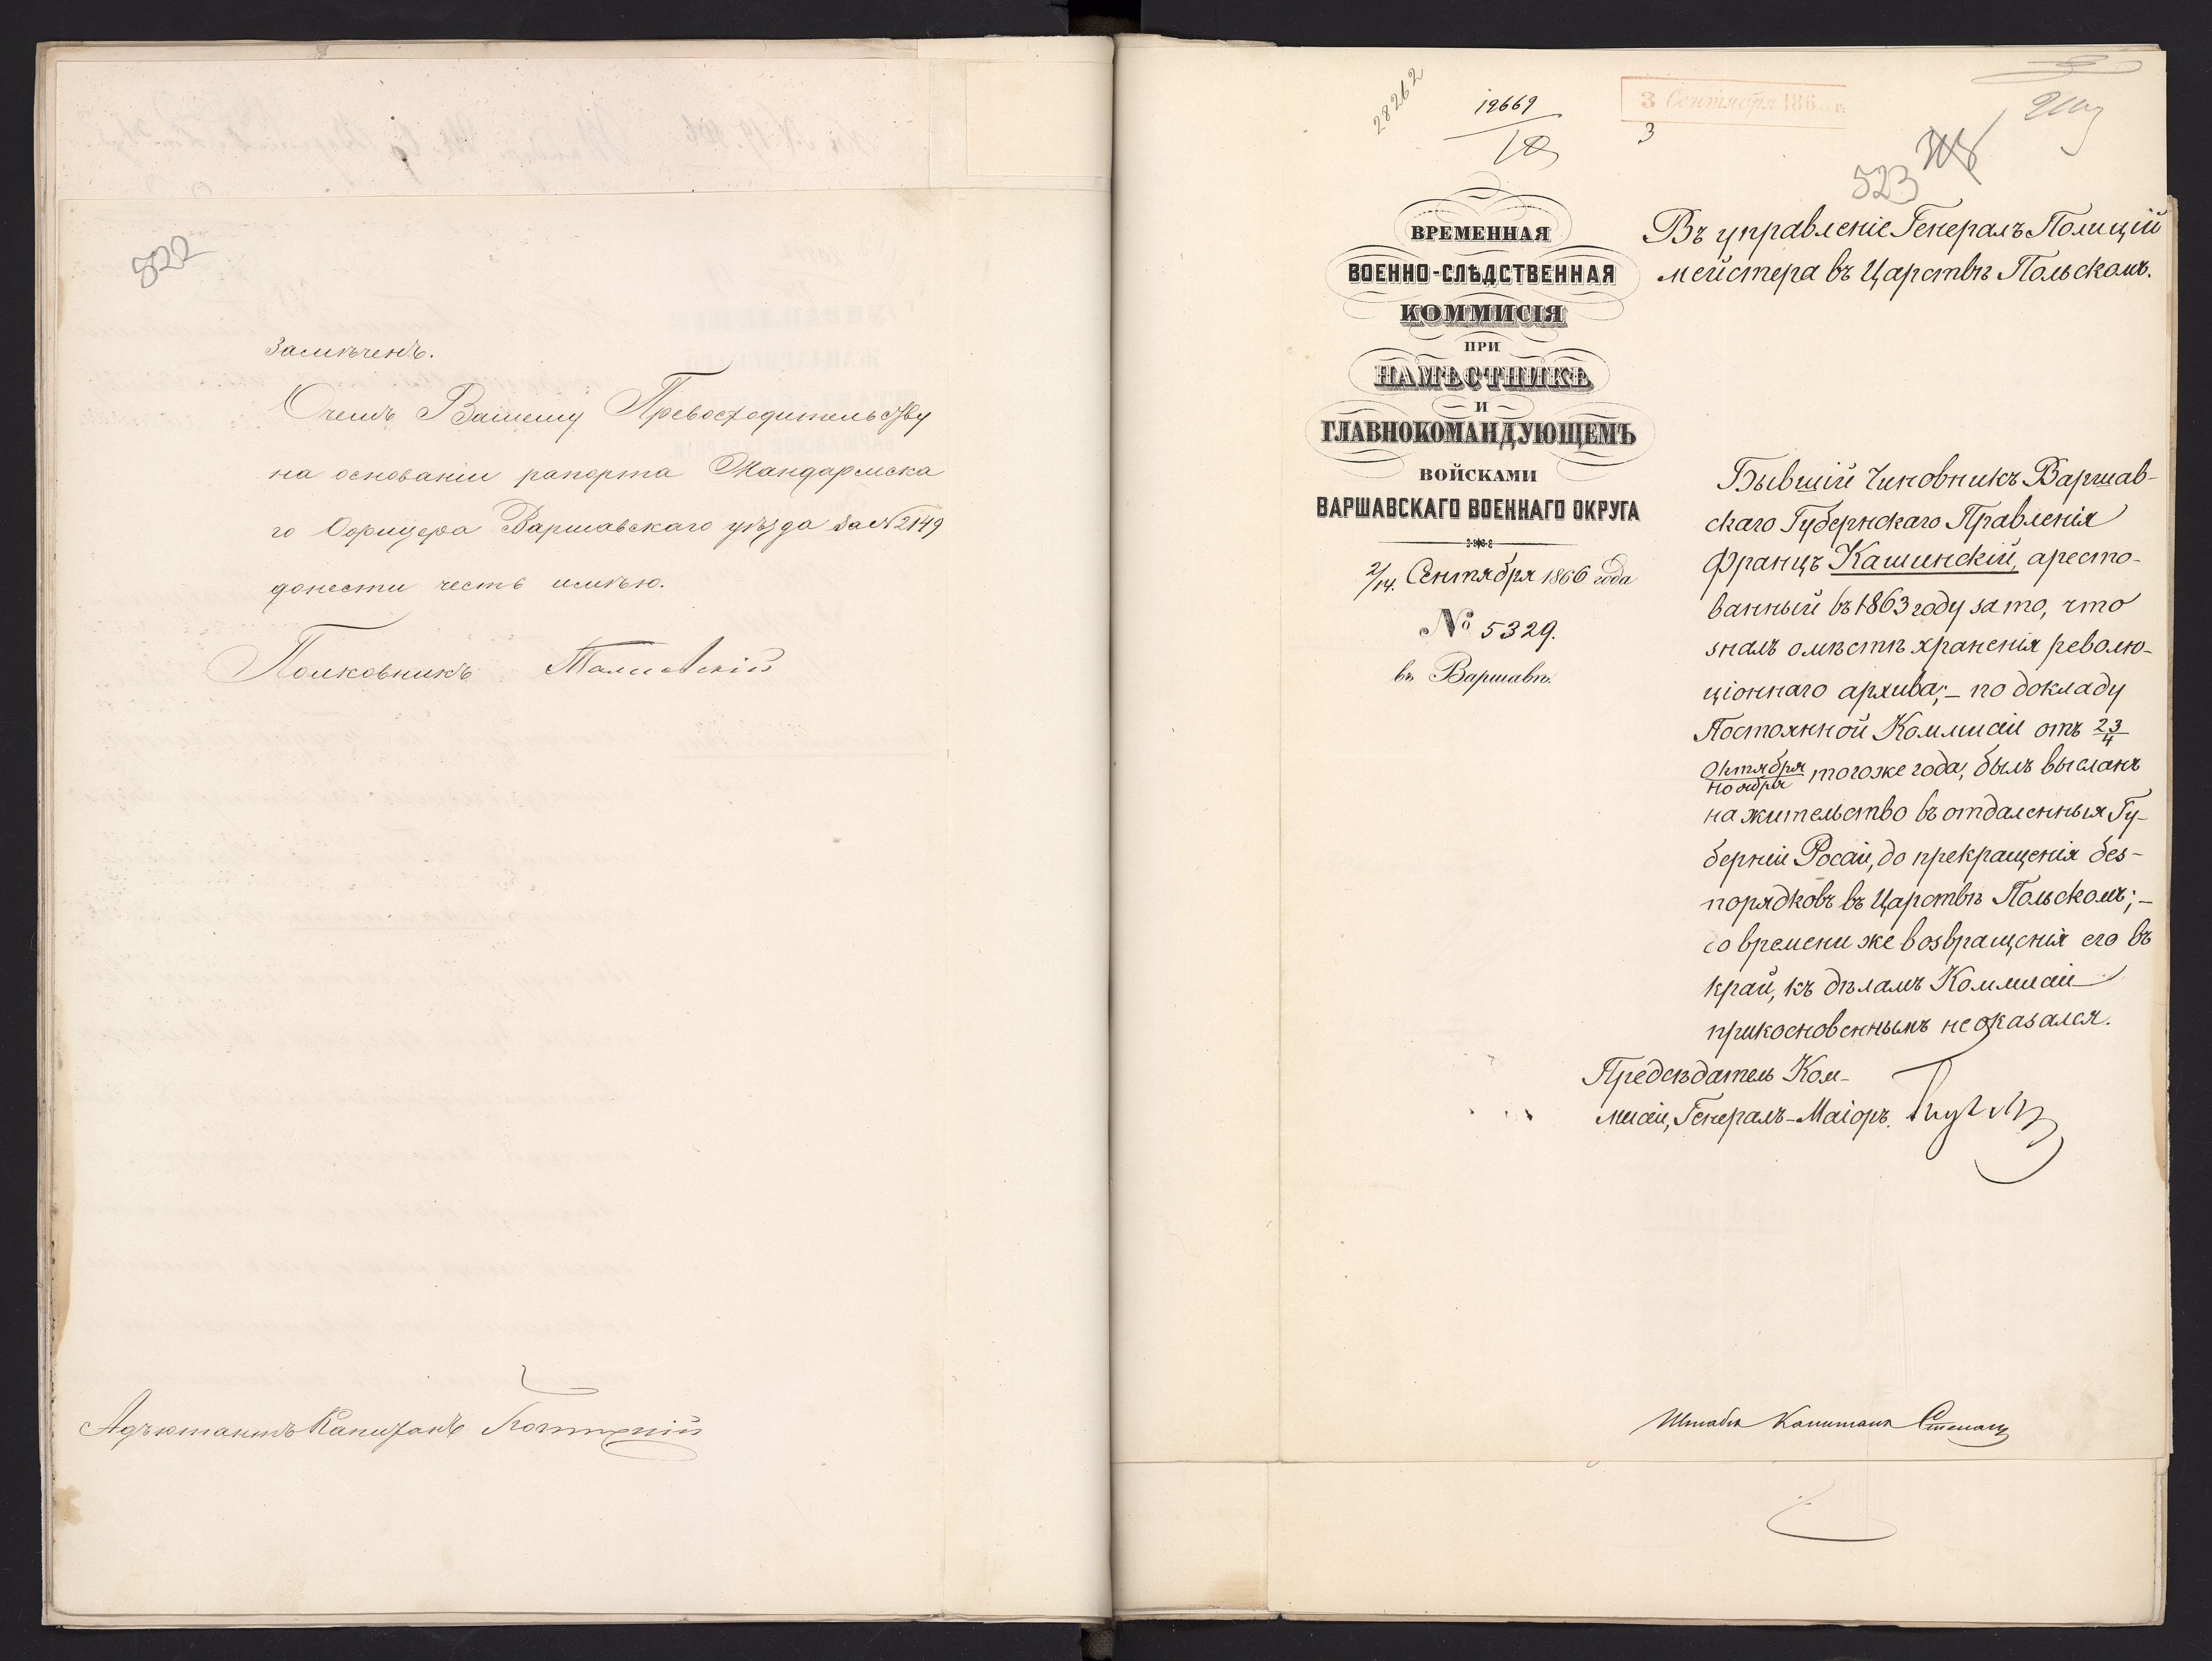 522
замѣченъ.
О чемъ Вашему Превосходительству
на основаніи рапорта Жандармска
го Офицера Варшавскаго уѣзда за № 2149
донести честь имѣю.
Полковникъ
Адъютантъ Капитанъ
28262
12669
3 Сентября 186
3
523
ВРЕМЕННАЯ
ВОЕННО-СЛѢДСТВЕННАЯ
КОММИСІЯ
ПРИ
НАМѢСТНИКѢ
И
ГЛАВНОКОМАНДУЮЩЕМЪ
ВОЙСКАМИ
ВАРШАВСКАГО ВОЕННАГО ОКРУГА
2/14. Сентября 1866 года
№ 5329.
въ Варшавѣ.
Въ управленіе Генералъ Полицій
мейстера въ Царствѣ Польскомъ.
Бывшій Чиновникъ Варшав-
скаго Губернскаго Правленія
Францъ Кашинскій, аресто-
ванный въ 1863 году за то, что
зналъ о мѣстѣ храненія револю-
ціоннаго архива; - по докладу
Постоянной Коммисіи отъ 23/4
Октября/Ноября тогоже года, былъ высланъ
на жительство въ отдаленныя Гу-
берніи Росіи, до прекращенія без-
порядковъ въ Царствѣ Польскомъ; -
со времени же возвращенія его въ
край, къ дѣламъ Коммисіи
прикосновеннымъ не оказался.
Предсѣдатель Ком-
мисіи, Генералъ-Маіоръ.
Штабсъ Капитанъ